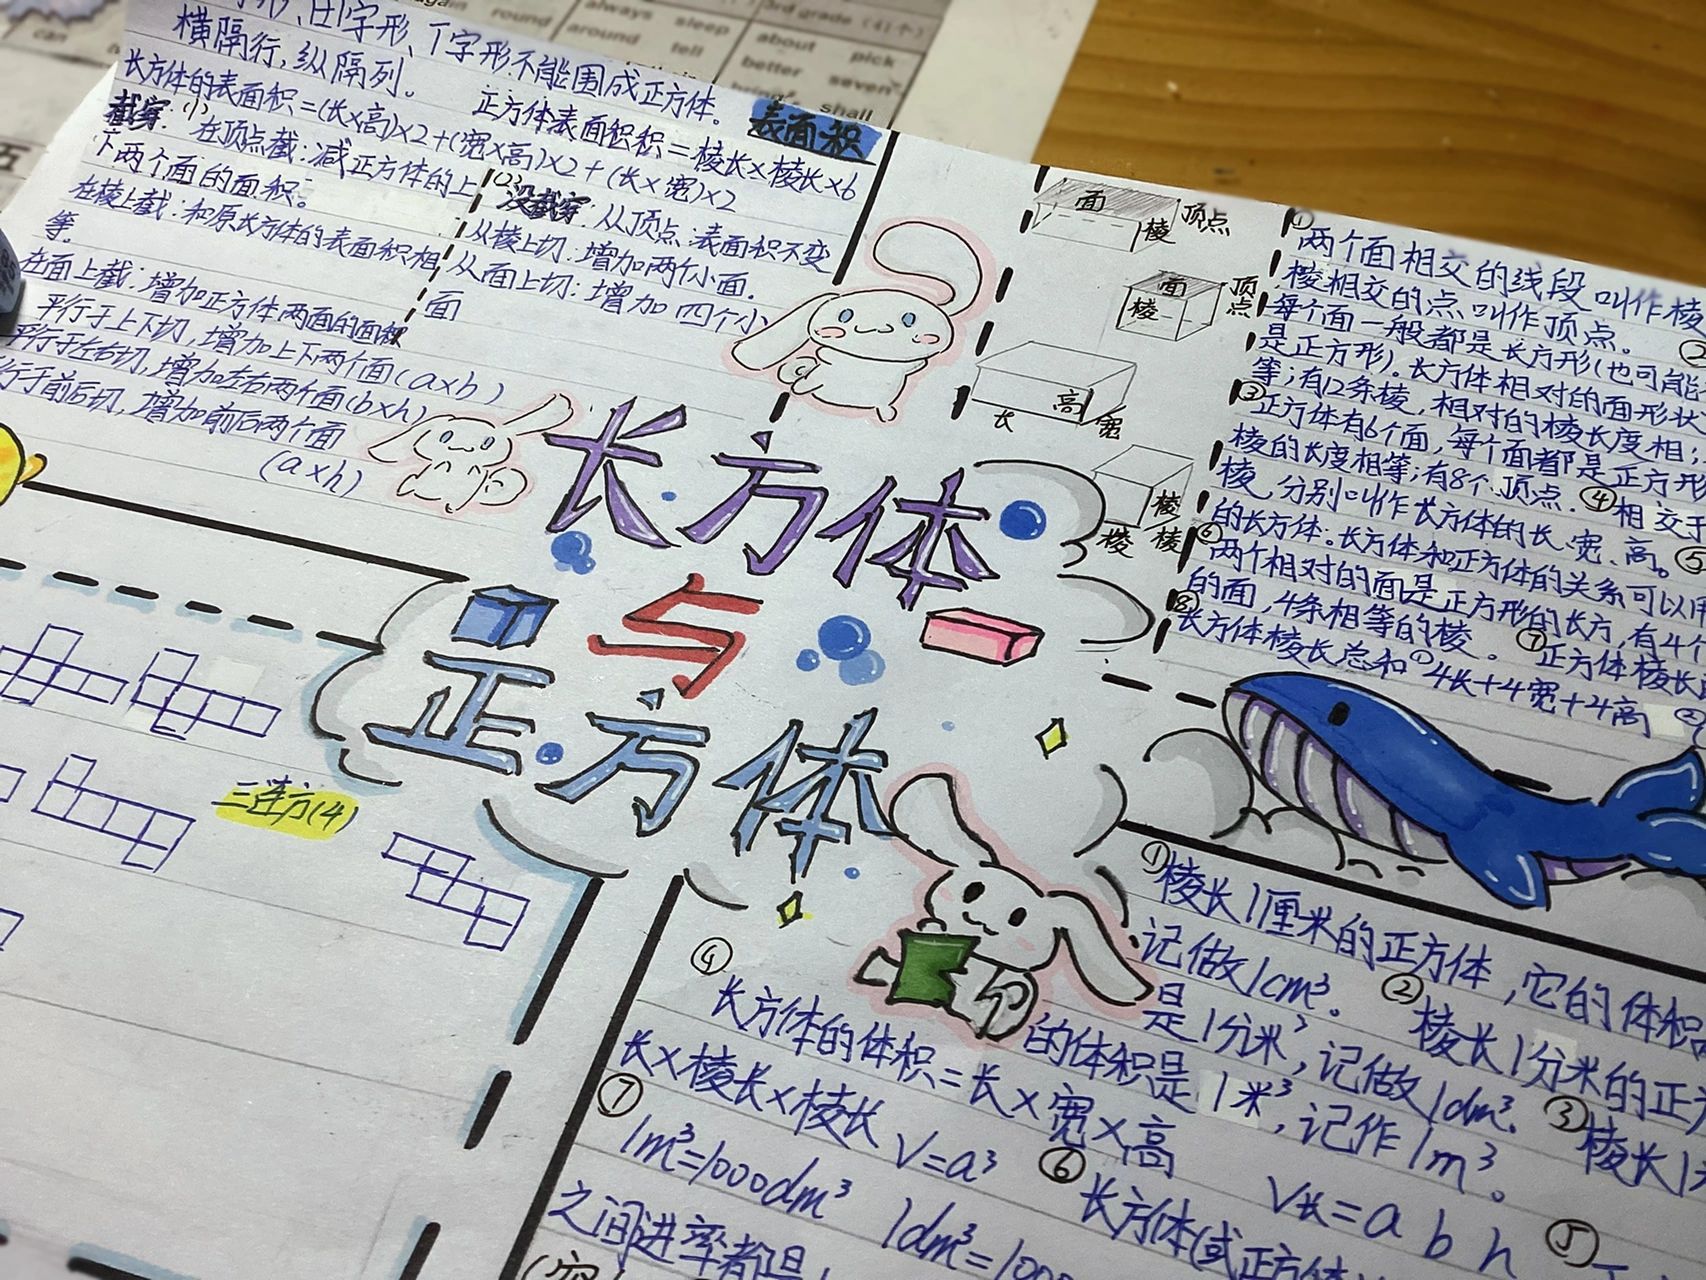 田字形、丁字形不能围成正方体。
横隔行,纵隔列。
表面积
长方体的表面积=(长×高)×2+(宽×高)×2+(长×宽)×2
正方体表面积积=棱长×棱长×6
截穿:(1)
在顶点截:减正方体的上
下两个面的面积。
在棱上截:和原长方体的表面积相
等。
在面上截:增加正方体两面的面积
平行于上下切,增加上下两个面(a×b)
平行于左右切,增加左右两个面(b×h)
行于前后切,增加前后两个面
(a×h)
(2)没截穿:从顶点:表面积不变
从棱上切:增加两个小面.
从面上切:增加四个小
面
面
顶点
棱
面
顶点
棱
长
高
宽
棱
棱
棱
①
两个面相交的线段叫作棱
棱相交的点叫作顶点。
②
每个面一般都是长方形(也可能
是正方形).长方体相对的面形状
等;有12条棱,相对的棱长度相;
③正方体有6个面,每个面都是正方形
棱的长度相等;有8个顶点.④相交于
棱,分别叫作长方体的长、宽、高。⑤
的长方体.长方体和正方体的关系可以用
⑥两个相对的面是正方形的长方,有4个
的面,4条相等的棱。⑦正方体棱长
⑧长方体棱长总和①4长+4宽+4高②
长方体
与
正方体
三连方(4)
①棱长1厘米的正方体,它的体积
记做1cm³。②棱长1分米的正
是1分米³,记做1dm³.③棱长1
的体积是1米³,记作1m³。
④
长方体的体积=长×宽×高
V长=a b h
⑤
长×棱长×棱长 V=a³
⑥长方体(或正方体
⑦
1m³=1000dm³ 1dm³=1000
之间进率都是